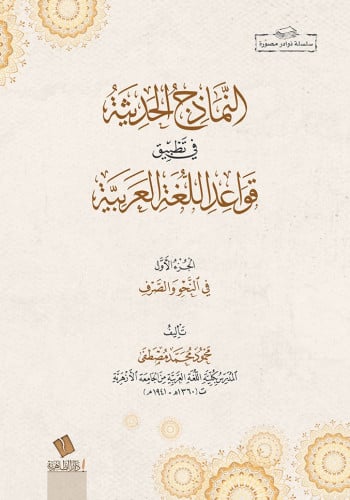 سلسلة نوادر مصورة
النَّمَاذِجُ الحَدِيثَةُ
فِي تَطْبِيقِ
قَوَاعِدِ اللُّغَةِ العَرَبِيَّةِ
الجُزْءُ الأَوَّلُ
فِي النَّحْوِ وَالصَّرْفِ
تَأْلِيفُ
مَحْمُود مُحَمَّد مُصْطَفَى
بِكُلِّيَّةِ اللُّغَةِ العَرَبِيَّةِ مِنَ الجَامِعَةِ الأَزْهَرِيَّةِ
ت (١٣٦٠هـ - ١٩٤١م)
دار الظاهرية